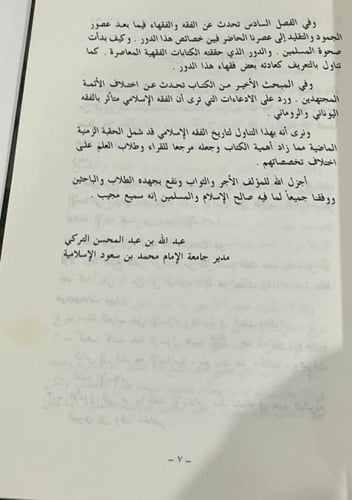 وفي الفصل السادس تحدث عن الفقه والفقهاء فيما بعد عصور
الجمود والتقليد إلى عصرنا الحاضر فبين خصائص هذا الدور . وكيف بدأت
صحوة المسلمين . والدور الذي حققته الكتابات الفقهية المعاصرة . كما
تناول بالتعريف كعادته بعض فقهاء هذا الدور .
وفي المبحث الأخير من الكتاب تحدث عن اختلاف الأئمة
المجتهدين . ورد على الادعاءات التي ترى أن الفقه الإسلامي متأثر بالفقه
اليوناني والروماني .
ونرى أنه بهذا التناول لتاريخ الفقه الإسلامي قد شمل الحقبة الزمنية
الماضية مما زاد أهمية الكتاب وجعله مرجعا للقراء وطلاب العلم على
اختلاف تخصصاتهم .
أجزل الله للمؤلف الأجر والثواب ونفع بجهده الطلاب والباحثين
ووفقنا جميعاً لما فيه صالح الإسلام والمسلمين إنه سميع مجيب .
عبد الله بن عبد المحسن التركي
مدير جامعة الإمام محمد بن سعود الإسلامية
- ٧ -